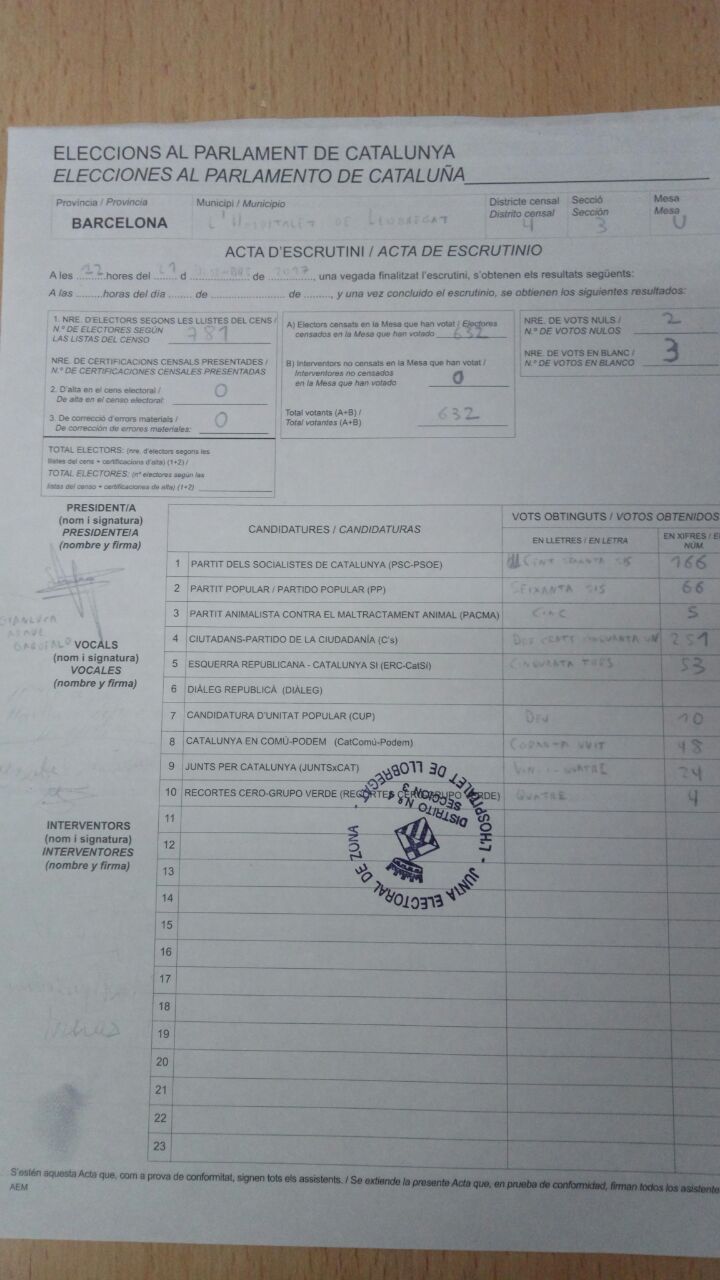 ELECCIONS AL PARLAMENT DE CATALUNYA
ELECCIONES AL PARLAMENTO DE CATALUÑA
Provincia / Provincia
BARCELONA
Municipi / Municipio
L'HOSPITALET DE LLOBREGAT
Districte censal
Distrito censal
4
Secció
Sección
3
Mesa
Mesa
U
ACTA D'ESCRUTINI / ACTA DE ESCRUTINIO
A les 22 hores del 21 d de 2017, una vegada finalitzat l'escrutini, s'obtenen els resultats següents:
A las ......... horas del día ....... de .................. de ........, y una vez concluido el escrutinio, se obtienen los siguientes resultados:
1. NRE. D'ELECTORS SEGONS LES LLISTES DEL CENS /
N.º DE ELECTORES SEGÚN
LAS LISTAS DEL CENSO 781
NRE. DE CERTIFICACIONS CENSALS PRESENTADES /
N.º DE CERTIFICACIONES CENSALES PRESENTADAS
2. D'alta en el cens electoral /
De alta en el censo electoral: 0
3. De correcció d'errors materials /
De corrección de errores materiales: 0
TOTAL ELECTORS: (nre. d'electors segons les
llistes del cens + certificacions d'alta) (1+2) /
TOTAL ELECTORES: (nº electores según las
listas del censo + certificaciones de alta) (1+2)
A) Electors censats en la Mesa que han votat / Electores
censados en la Mesa que han votado 632
B) Interventors no censats en la Mesa que han votat /
Interventores no censados
en la Mesa que han votado 0
Total votants (A+B) /
Total votantes (A+B) 632
NRE. DE VOTS NULS /
N.º DE VOTOS NULOS 2
NRE. DE VOTS EN BLANC /
N.º DE VOTOS EN BLANCO 3
PRESIDENT/A
(nom i signatura)
PRESIDENTE/A
(nombre y firma)
GIANLUCA
VOCALS
(nom i signatura)
VOCALES
(nombre y firma)
INTERVENTORS
(nom i signatura)
INTERVENTORES
(nombre y firma)
CANDIDATURES / CANDIDATURAS
VOTS OBTINGUTS / VOTOS OBTENIDOS
EN LLETRES / EN LETRA
EN XIFRES / E
NÚM.
1 PARTIT DELS SOCIALISTES DE CATALUNYA (PSC-PSOE) CENT SEIXANTA SIS 166
2 PARTIT POPULAR / PARTIDO POPULAR (PP) SEIXANTA SIS 66
3 PARTIT ANIMALISTA CONTRA EL MALTRACTAMENT ANIMAL (PACMA) CINC 5
4 CIUTADANS-PARTIDO DE LA CIUDADANÍA (C's) DOS CENTS CINQUANTA UN 251
5 ESQUERRA REPUBLICANA - CATALUNYA SI (ERC-CatSí) CINQUANTA TRES 53
6 DIÀLEG REPUBLICÀ (DIÀLEG)
7 CANDIDATURA D'UNITAT POPULAR (CUP) DEU 10
8 CATALUNYA EN COMÚ-PODEM (CatComú-Podem) VUIT 48
9 JUNTS PER CATALUNYA (JUNTSxCAT) QUATRE 24
10 RECORTES CERO-GRUPO VERDE (RECORTES CERO-GRUPO VERDE) QUATRE 4
JUNTA ELECTORAL DE ZONA - L'HOSPITALET DE LLOBREGAT -
DISTRITO N.º 4
SECCION 3
11
12
13
14
15
16
17
18
19
20
21
22
23
S'estén aquesta Acta que, com a prova de conformitat, signen tots els assistents. / Se extiende la presente Acta que, en prueba de conformidad, firman todos los asistente
AEM